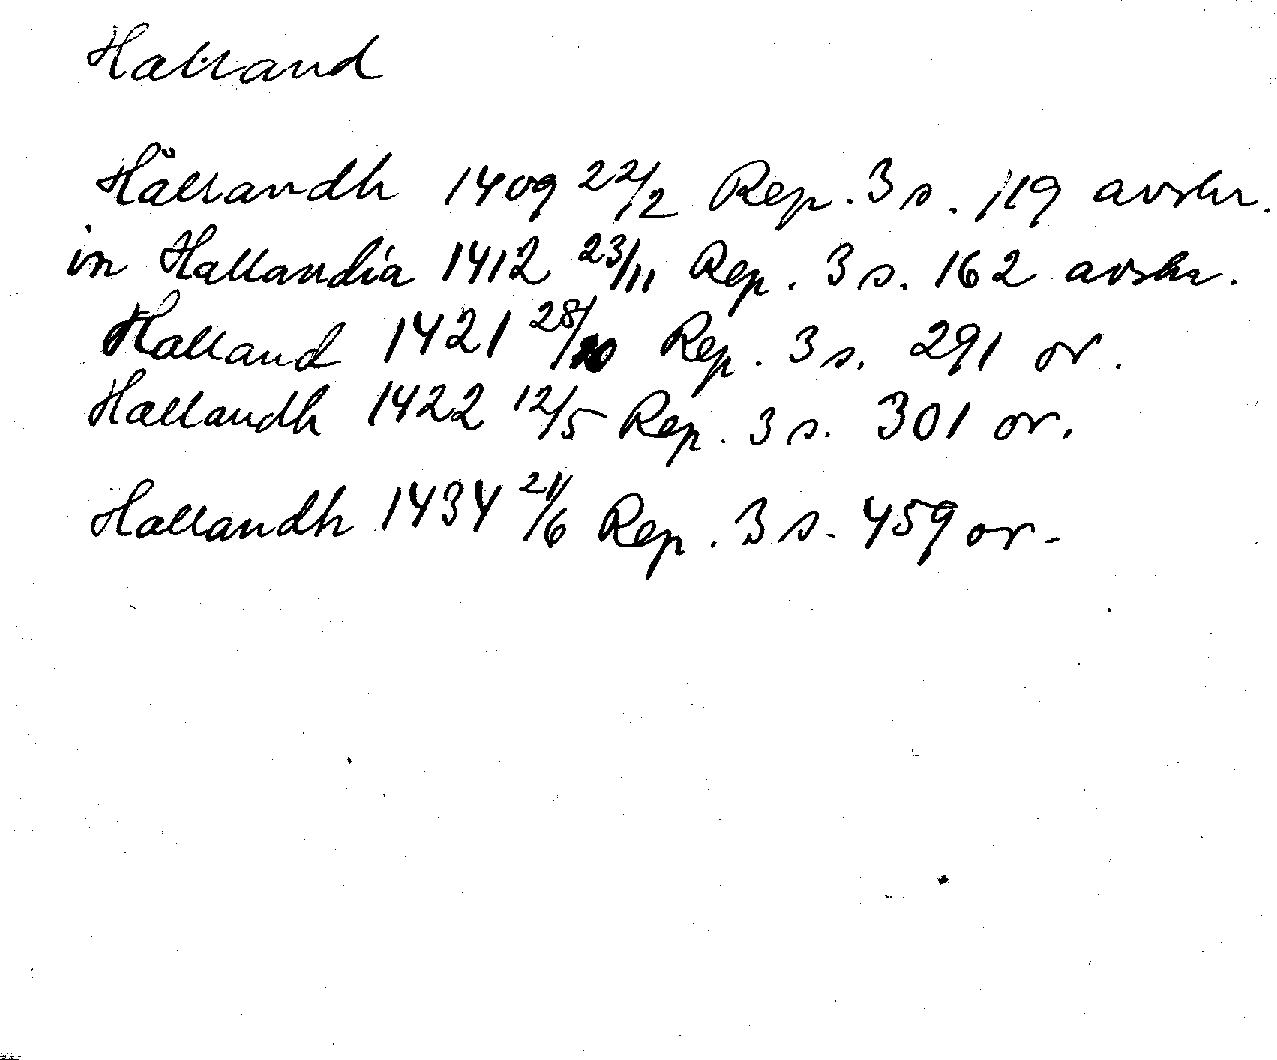 Halland
Hållandh 1409 22/2 Rep. 3 s. 119 avskr.
in Hallandia 1412 23/11 Rep. 3 s. 162 avskr.
Halland 1421 28/10 Rep. 3 s. 291 or.
Hallandh 1422 12/5 Rep. 3 s. 301 or.
Hallandh 1434 21/6 Rep. 3 s. 459 or.